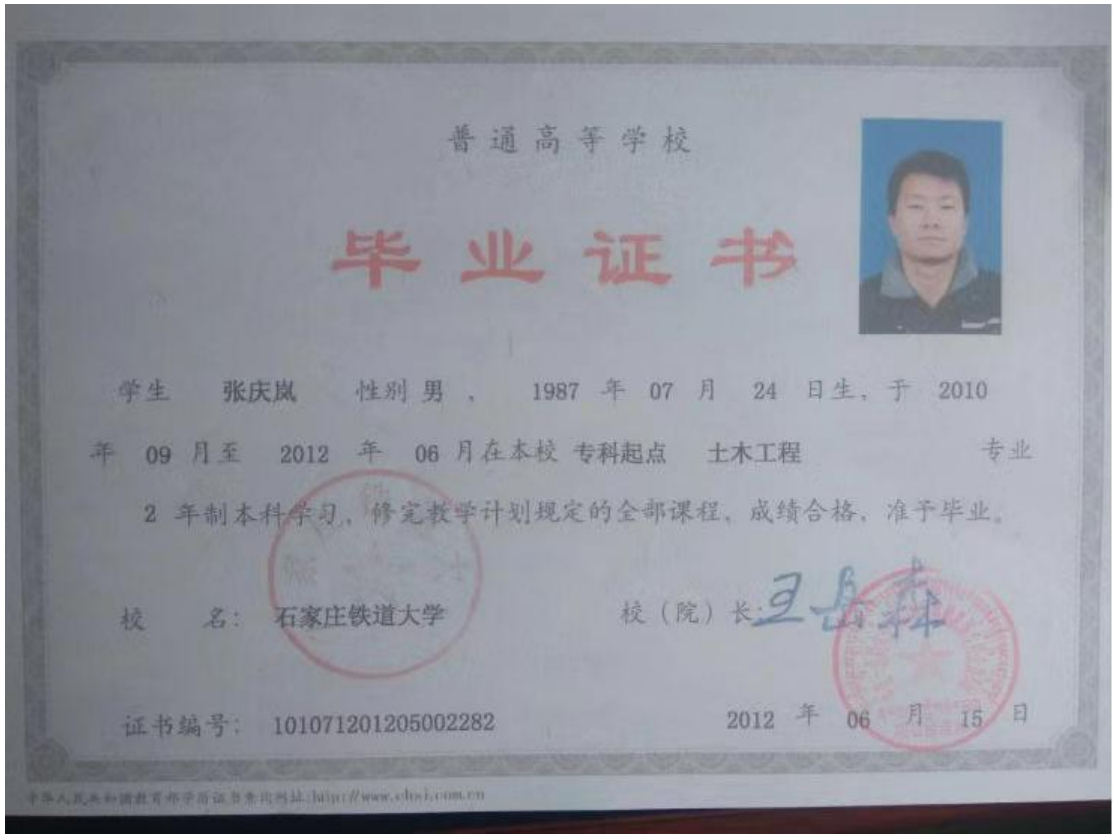 普通高等学校
毕业证书
学生 张庆岚 性别 男 , 1987 年 07 月 24 日生, 于 2010
年 09 月至 2012 年 06 月在本校 专科起点 土木工程 专业
2 年制本科学习, 修完教学计划规定的全部课程, 成绩合格, 准予毕业。
校 名: 石家庄铁道大学 校(院)长: 王岳森
证书编号: 101071201205002282 2012 年 06 月 15 日
中华人民共和国教育部学历证书查询网址:http://www.chsi.com.cn